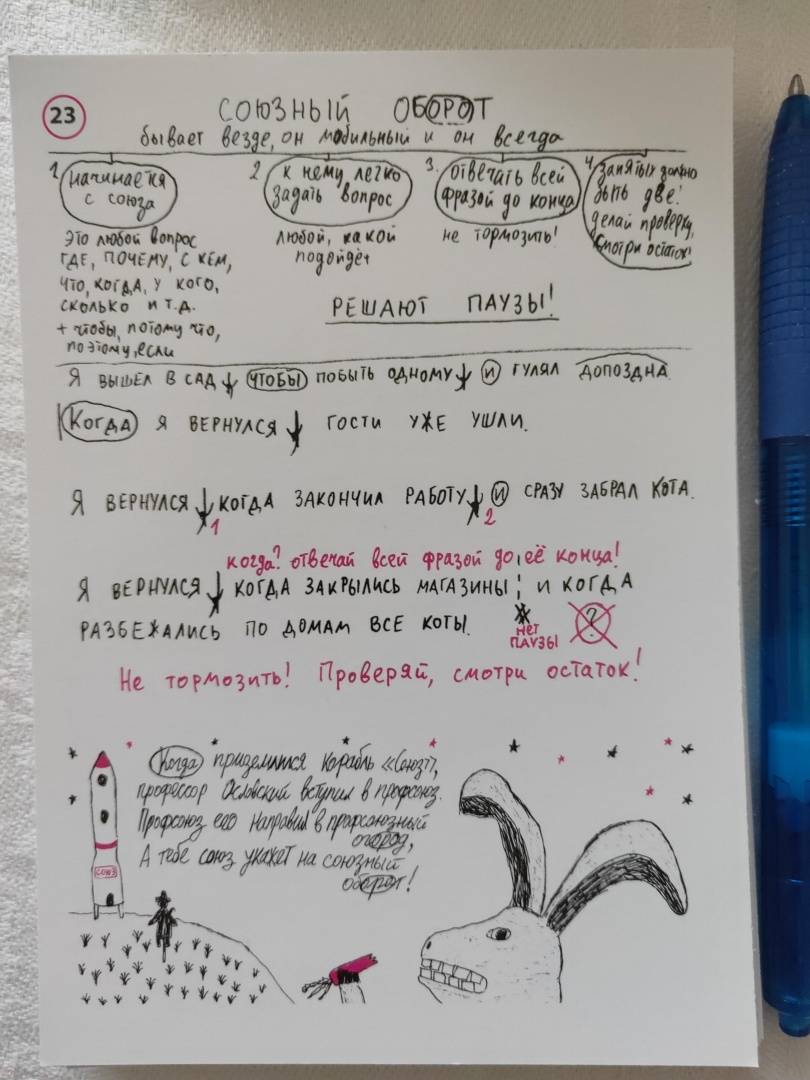 23
СОЮЗНЫЙ ОБОРОТ
бывает везде, он мобильный и он всегда
1 начинается
с союза
это любой вопрос
ГДЕ, ПОЧЕМУ, С КЕМ,
ЧТО, КОГДА, У КОГО,
СКОЛЬКО И Т.Д.
+ чтобы, потому что,
поэтому, если
2 к нему легко
задать вопрос
любой, какой
подойдёт
3. отвечать всей
фразой до конца
не тормозить!
4 запятых должно
быть две!
делай проверку,
смотри остаток!
РЕШАЮТ ПАУЗЫ!
Я ВЫШЕЛ В САД, ЧТОБЫ ПОБЫТЬ ОДНОМУ, И ГУЛЯЛ ДОПОЗДНА.
КОГДА Я ВЕРНУЛСЯ, ГОСТИ УЖЕ УШЛИ.
Я ВЕРНУЛСЯ, КОГДА ЗАКОНЧИЛ РАБОТУ, И СРАЗУ ЗАБРАЛ КОТА.
1 2
когда? отвечай всей фразой до её конца!
Я ВЕРНУЛСЯ, КОГДА ЗАКРЫЛИСЬ МАГАЗИНЫ И КОГДА
РАЗБЕЖАЛИСЬ ПО ДОМАМ ВСЕ КОТЫ.
НЕТ
ПАУЗЫ
?
Не тормозить! Проверяй, смотри остаток!
Когда приземлился корабль «Союз»,
профессорОсловский вступил в профсоюз.
Профсоюз его направил в профсоюзный
огород,
А тебе союз укажет на союзный
оборот!
СОЮЗ